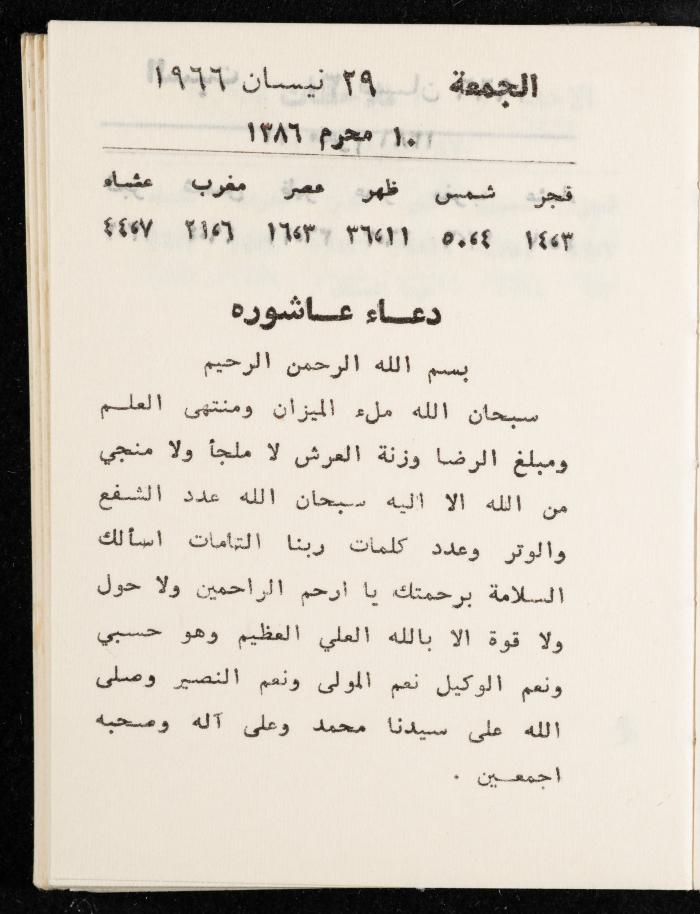 الجمعة ٢٩ نيسان ١٩٦٦
١٠ محرم ١٣٨٦
فجر شمس ظهر عصر مغرب عشاء
١٤،٣ ٥٠،٤ ٣٦،١١ ١٦،٣ ٢١،٦ ٤٤،٧
دعاء عاشوره
بسم الله الرحمن الرحيم
سبحان الله ملء الميزان ومنتهى العلم
ومبلغ الرضا وزنة العرش لا ملجأ ولا منجي
من الله الا اليه سبحان الله عدد الشفع
والوتر وعدد كلمات ربنا التامات اسألك
السلامة برحمتك يا ارحم الراحمين ولا حول
ولا قوة الا بالله العلي العظيم وهو حسبي
ونعم الوكيل نعم المولى ونعم النصير وصلى
الله على سيدنا محمد وعلى آله وصحبه
اجمعين .